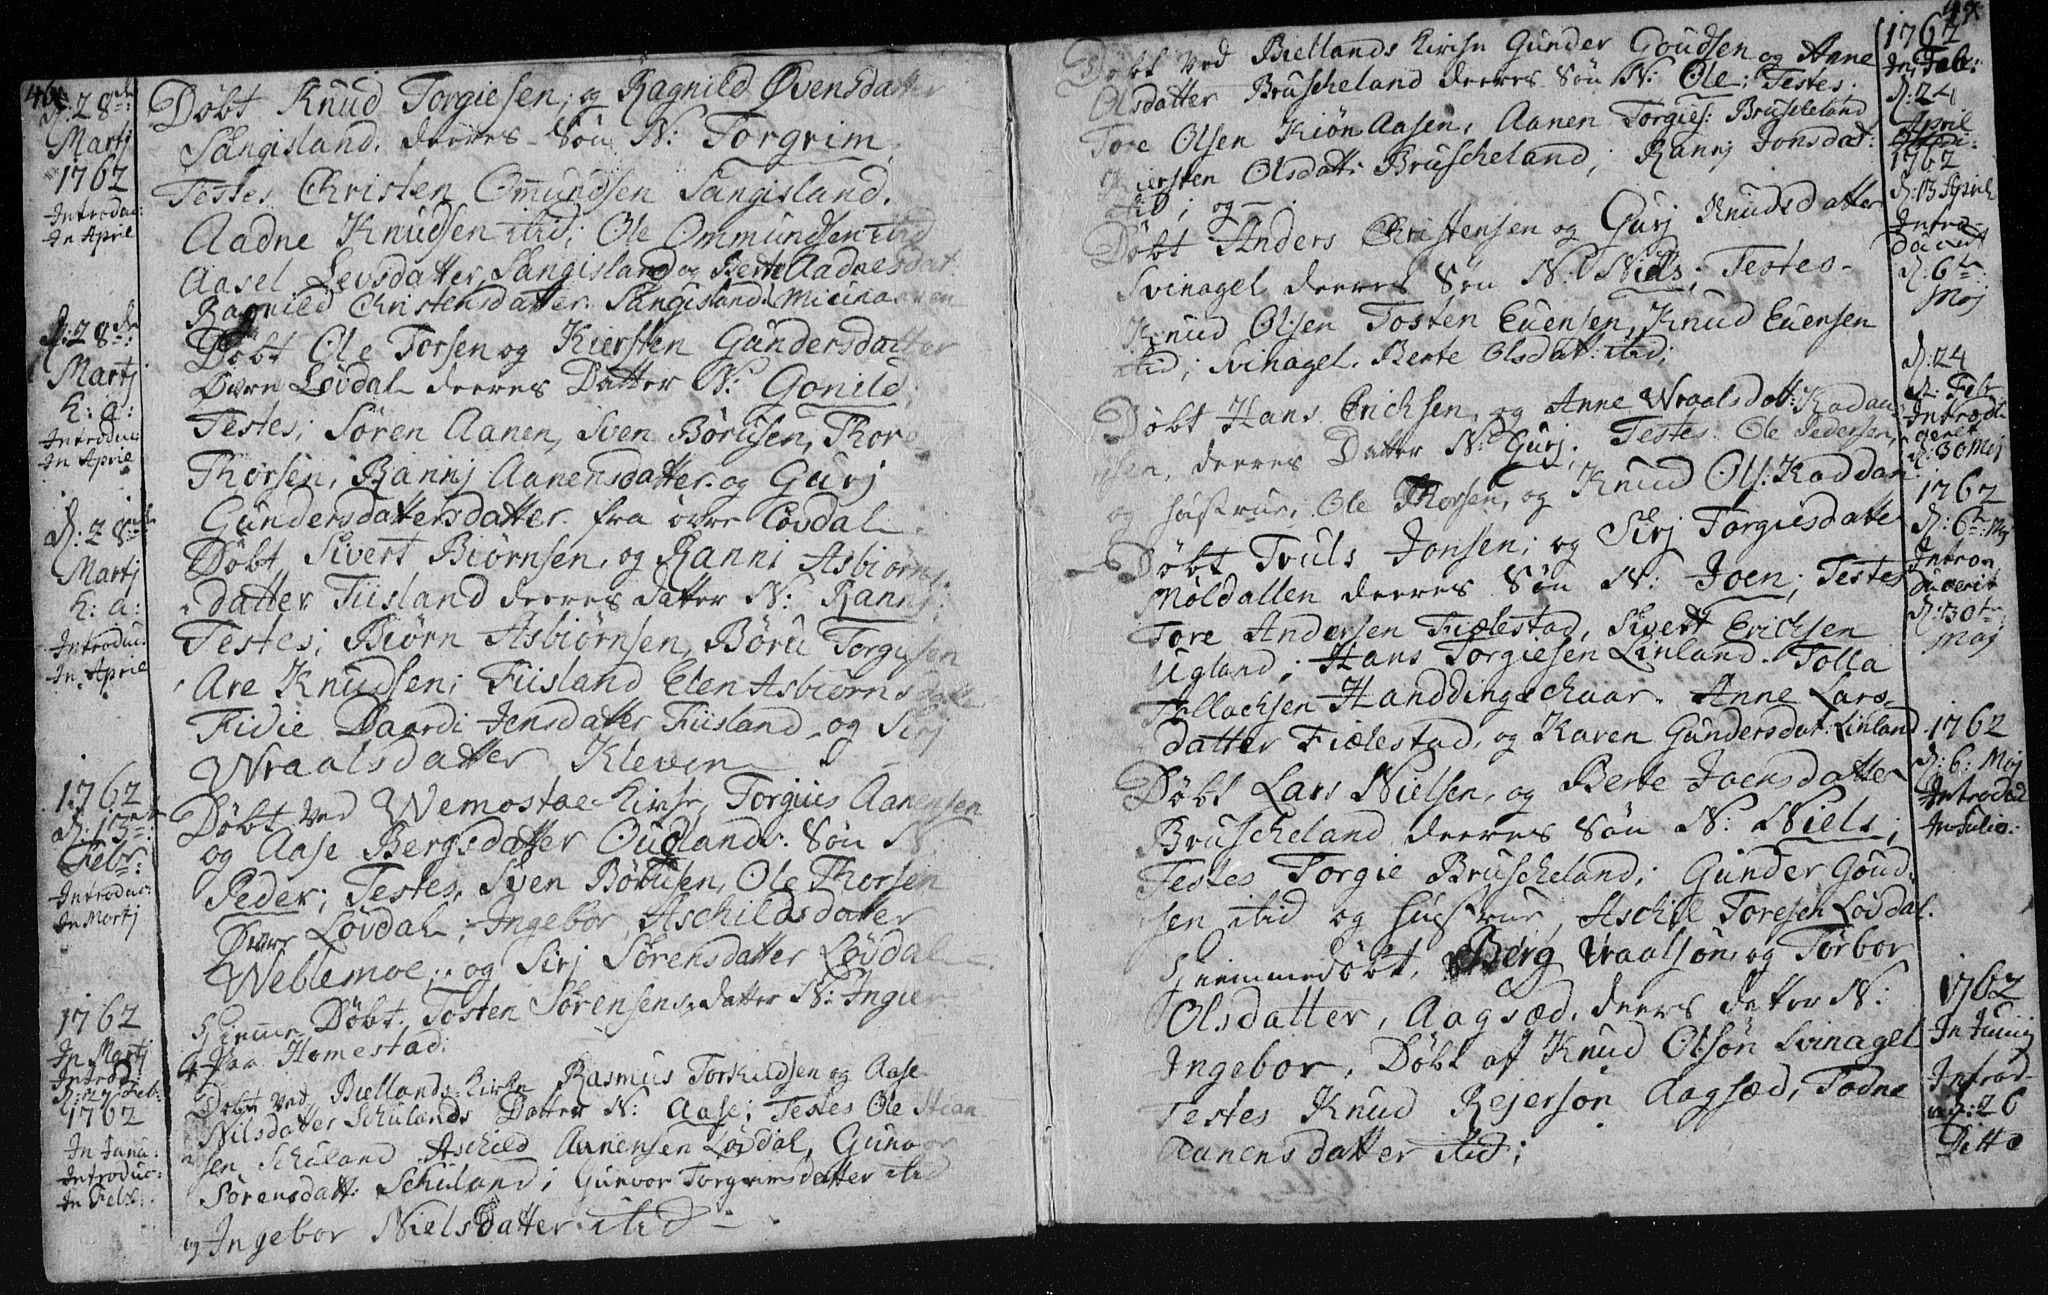 46
d: 28de
Martj
1762
Introduc:
In April
Døbt Knud Torgiesen, og Ragnild Øvensdatter
Sangisland, deeres Søn N: Torgrim,
Testes Christen Omundsen Sangisland.
Aadne Knudsen ibid; Ole Ommundsen ibid
Aasel Levsdatter, Sangisland og Berte Aadnesdat.
Ragnild Christensdatter Sangisland
d: 28de
Martj
h: a:
Introduc
In April
Døbt Ole Torsen og Kiersten Gundersdatter
Øvre Løvdal deeres Datter N: Gonild;
Testes; Søren Aanen, Sven Børusen, Thor
Thorsen, Rannj Aanensdatter og Gurj
Gundersdattersdatter fra øvre Løvdal
d: 28de
Martj
h: a:
Introduc:
In April
Døbt Sivert Biørnsen, og Ranni Asbiørns
datter Fiisland deeres datter N: Rannj:
Testes; Biørn Asbiørnsen, Børu Torgusen
Are Knudsen; Fiisland Elen Asbiørnsdatt
Fidie Daardi Jensdatter Fiisland og Sirj
Wraalsdatter Kleven
1762
d: 13de
Febr:
Introduc:
In Martj
Døbt ved Wemostae Kirche, Torgius Aanensen
og Aase Bergsdatter Oudlands Søn N
Peder; Testes, Sven Børusen, Ole Thorsen
Øvre Løvdal; Ingebor Aschildsdatter
Weblemoe; og Sirj Sørensdatter Løvdal
1762
In Martj
Introd
d: 27 Feb:
Hiemme Døbt Tosten Sørensens datter N: Ingier
paa Homestad;
1762
In Janu:
Introduc:
In Febr:
Døbt ved Biellands Kirche Rasmus Torkildsen og Aase
Nilsdatter Schulands Datter N: Aase; Testes Ole Stian
sen Schuland Aschild Aanensen Løvdal, Gunvor
Sørensdatt: Schuland; Gunvor Torgrimsdatter ibid
og Ingebor Nielsdatter ibid
47
1762
In Febr:
d: 24
April
1762
Døbt ved Biellands Kirche Gunder Goudsen og Anne
Olsdatter Bruscheland deeres Søn N: Ole; Testes
Tore Olsen Kiøn Aasen, Aanen Torgies: Bruscheland
Kiersten Olsdatt: Bruscheland, Rannj Jonsdat:
ibid; og
d: 13 April
Intro
ducert
d: 6te
Maj
Døbt Anders Christensen og Gurj Knudsdatter
Svinagel deeres Søn N: Niels; Testes
Knud Olsen Tosten Evensen, Knud Evensen
ibid; Svinagel. Berte Olsdat: ibid;
d: 24
Febr
Introdu
ceret
d: 30 Maj
Døbt Hans Erichsen, og Anne Wraalsdatt: Kadan
sen, deeres Datter N: Gurj; Testes Ole Pedersen,
og hustrue, Ole Thorsen, og Knud Ols: Kaddan
1762
d: 6te Maj
Intro
ducerit
d: 30te
Maj
Døbt Truls Jonsen; og Sirj Torgiusdatter
Moldallen deeres Søn N: Joen; Testes
Tore Andersen Fiælestad, Sivert Erichsen
Ugland; Hans Torgiesen Linland. Tolla
Tollachsen Handdingschaar. Anne Lars
datter Fiælestad, og Karen Gundersdat: Linland
1762
d: 6: Maj
Introdud
In Julio:
Døbt Lars Nielsen, og Berte Joensdatter
Bruscheland deeres Søn N: Niels;
Testes Torgie Bruscheland; Gunder Goud
sen ibid og hustrue, Aschil Toresen Løvdal.
1762
In Junij
Introd
26
Ditto
Hiemmedøbt, Berg Wraalsøn, og Torbor
Olsdatter, Aagsæd, deers datter N:
Ingebor, Døbt af Knud Olsøn Svinagel
Testes Knud Rejersøn Aagsæd, Todne
Aanensdatter ibid;